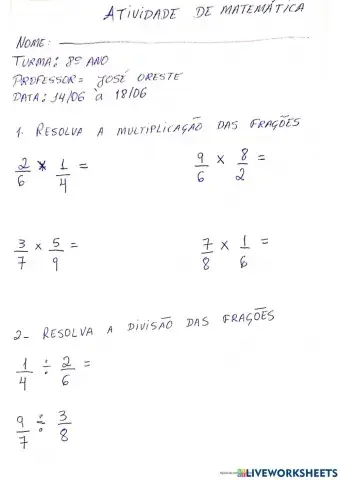 ATIVIDADE DE MATEMÁTICA
NOME:
TURMA: 8º ANO
PROFESSOR= JOSÉ ORESTE
DATA: 14/06 à 18/06
1. RESOLVA A MULTIPLICAÇÃO DAS FRAÇÕES
2/6 × 1/4 = 9/6 × 8/2 =
3/7 × 5/9 = 7/8 × 1/6 =
2- RESOLVA A DIVISÃO DAS FRAÇÕES
1/4 ÷ 2/6 =
9/7 ÷ 3/8
LIVEWORKSHEETS